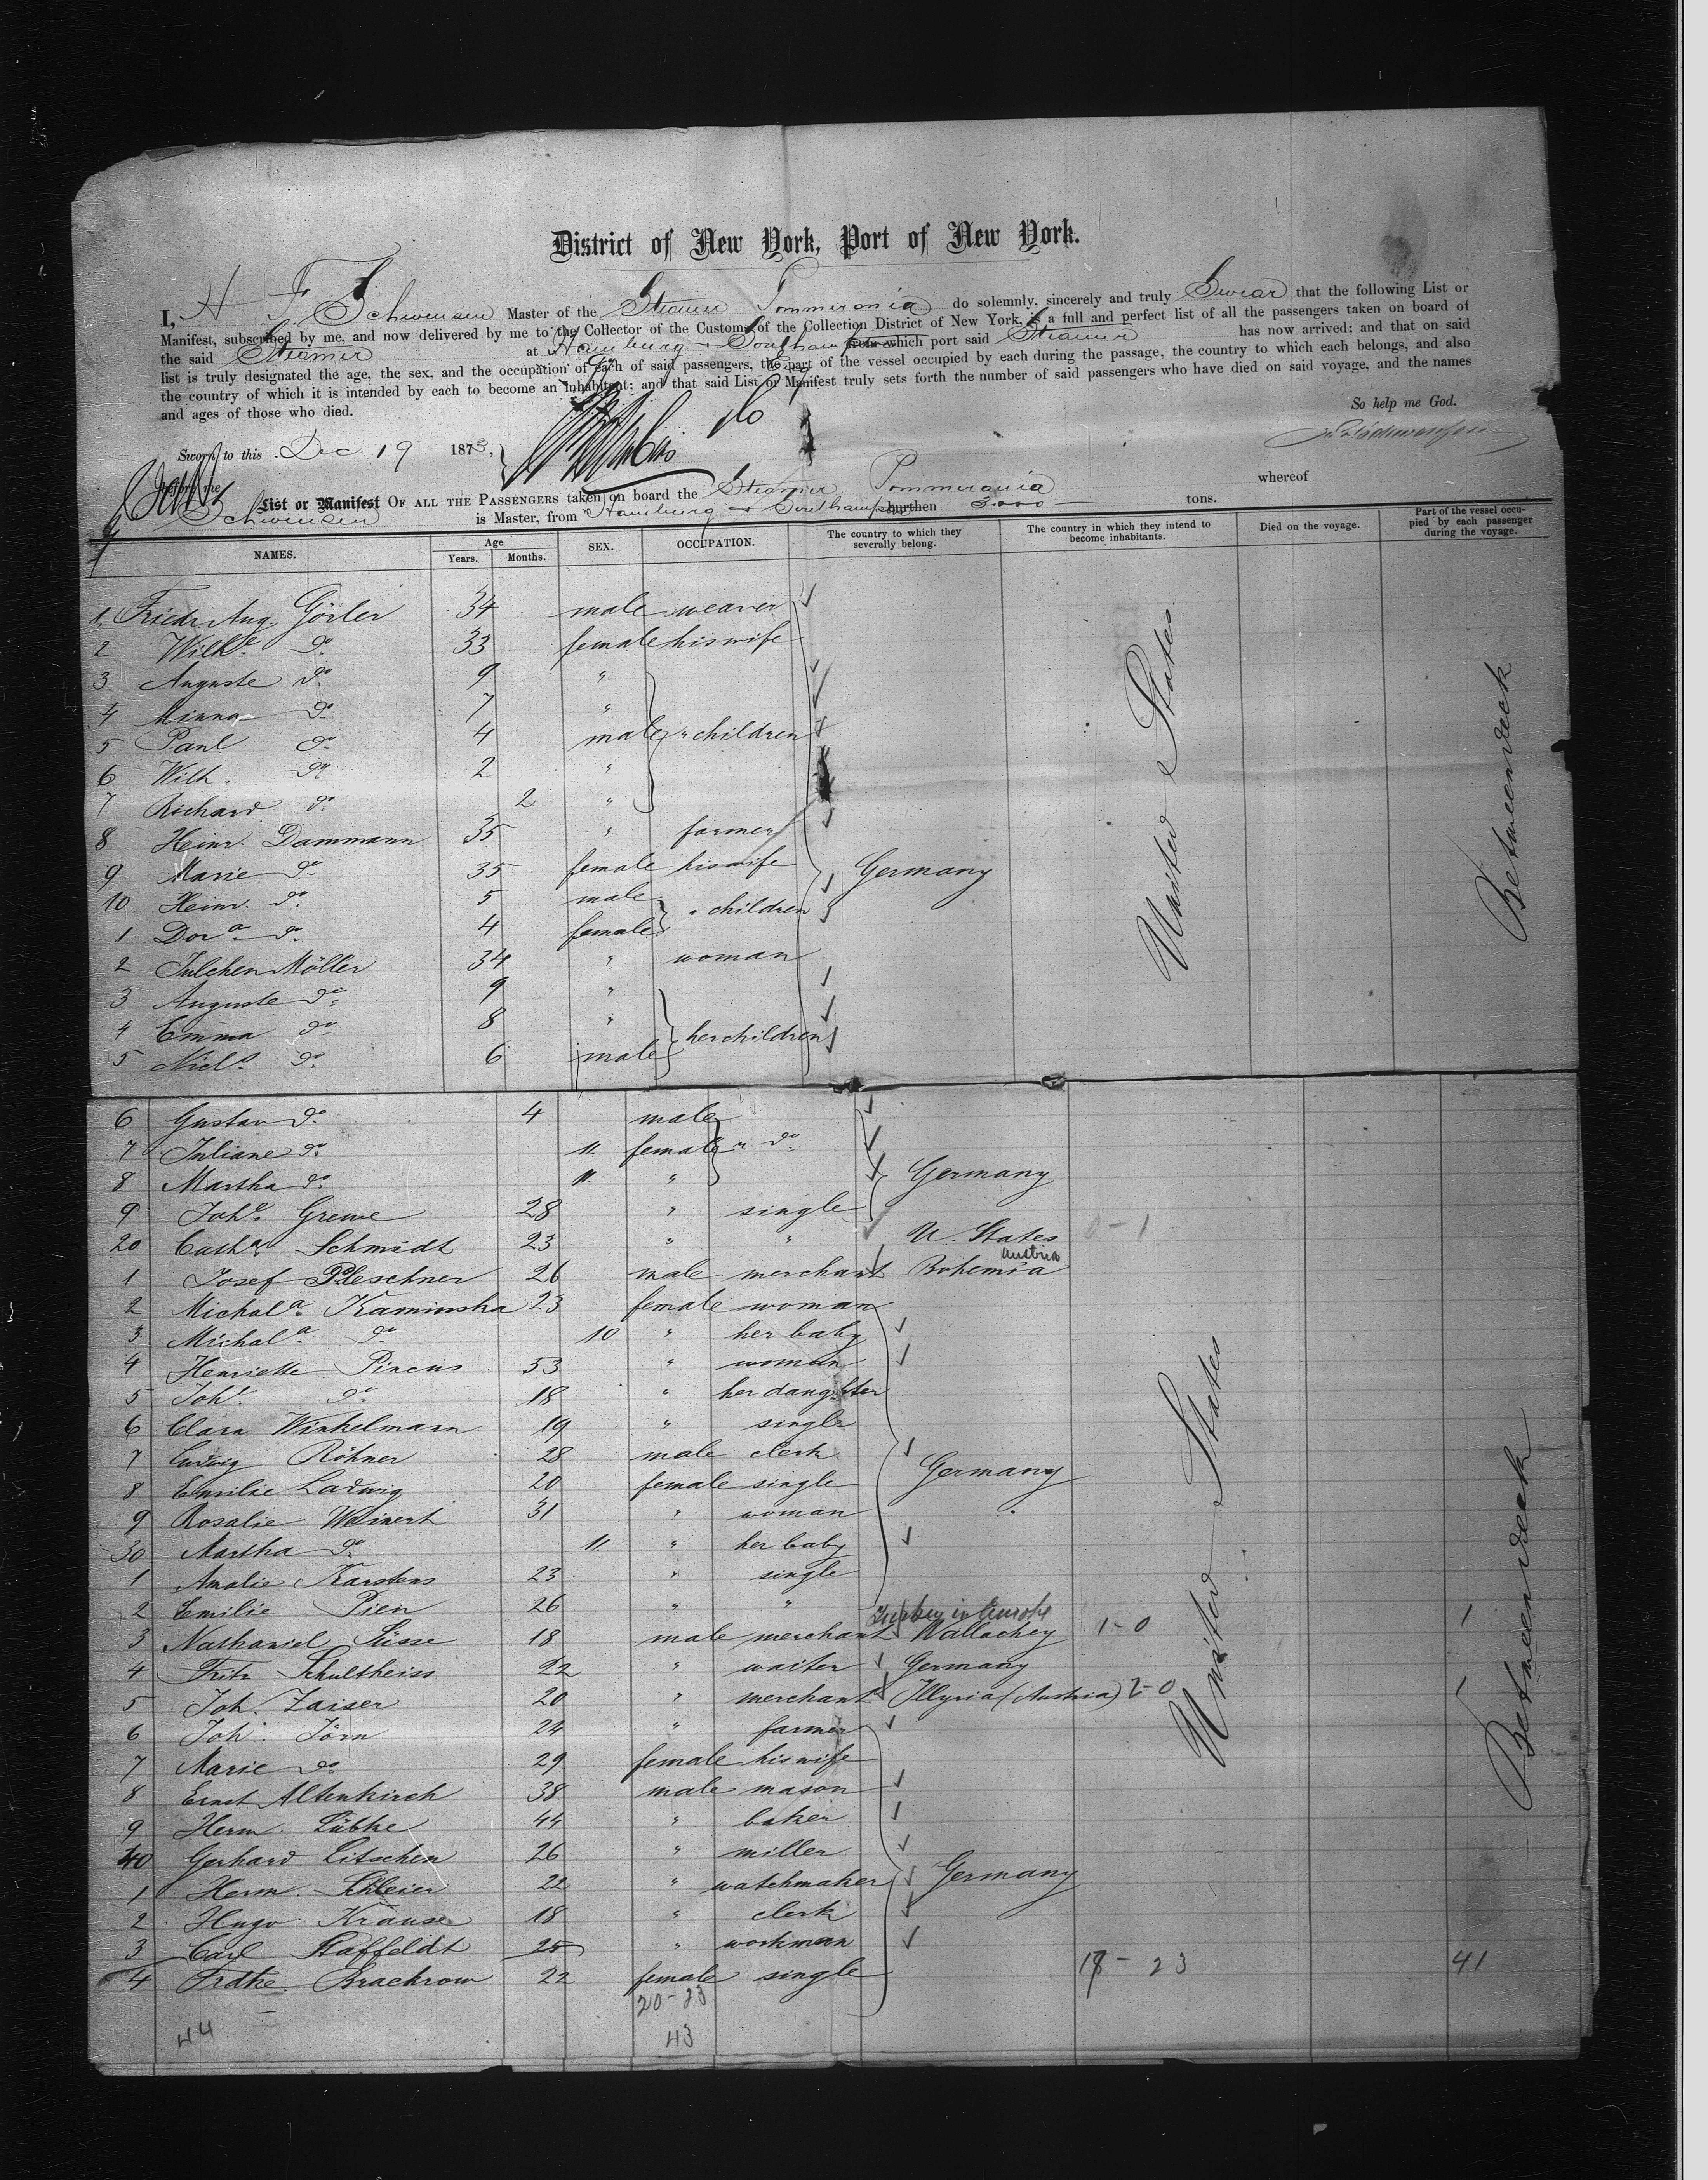 District of New York, Port of New York.
I, H F Schwensen Master of the Steamer Pommerania do solemnly, sincerely and truly Swear that the following List or
Manifest, subscribed by me, and now delivered by me to the Collector of the Customs of the Collection District of New York, is a full and perfect list of all the passengers taken on board of
the said Steamer at Hamburg & Southampton from which port said Steamer has now arrived: and that on said
list is truly designated the age, the sex, and the occupation of each of said passengers, the part of the vessel occupied by each during the passage, the country to which each belongs, and also
the country of which it is intended by each to become an inhabitant: and that said List or Manifest truly sets forth the number of said passengers who have died on said voyage, and the names
and ages of those who died.
So help me God.
Sworn to this Dec 19 1873,
before me
List or Manifest OF ALL THE PASSENGERS taken on board the Steamer Pommerania whereof
Schwensen is Master, from Hamburg & Southampton burthen 3000 tons.
NAMES. Age Years. Months. SEX. OCCUPATION. The country to which they severally belong. The country in which they intend to become inhabitants. Died on the voyage. Part of the vessel occupied by each passenger during the voyage.
1. Friedr. Aug. Görler 34 male weaver
2 Wilhe do 33 female his wife
3 Auguste do 9 "
4 Minna do 7 "
5 Paul do 4 male " children
6 Wilh. do 2 "
7 Richard do 2 "
8 Heinr. Dammann 35 " farmer
9 Marie do 35 female his wife Germany
10 Heinr. do 5 male
1 Dora do 4 female " children
2 Julchen Möller 34 " woman
3 Auguste do 9 "
4 Emma do 8 " her children
5 Niels do 6 male
United States
Betweendeck
6 Gustav do 4 male
7 Juliane do 11 female " do
8 Martha do 11 " Germany
9 Johe Grewe 28 " single
20 Catha Schmidt 23 " " U. States 0-1
1 Josef Pleschner 26 male merchant Bohemia Austria
2 Michala Kaminska 23 female woman
3 Michala do 10 " her baby
4 Henriette Pincus 53 " woman
5 Johe do 18 " her daughter
6 Clara Winkelmann 19 " single
7 Ludwig Röhner 28 male clerk
8 Emilie Ladwig 20 female single Germany
9 Rosalie Weinert 31 " woman
30 Martha do 11 " her baby
1 Amalie Karstens 23 " single
2 Emilie Pien 26 " "
3 Nathaniel Süsse 18 male merchant Wallachey Turkey in Europe 1-0 1
4 Fritz Schultheiss 22 " waiter Germany
5 Joh. Zaiser 20 " merchant Illyria (Austria) 2-0 1
6 Joh. Jörn 24 " farmer
7 Marie do 29 female his wife
8 Ernst Altenkirch 38 male mason
9 Herm. Lübke 44 " baker
40 Gerhard Litschen 26 " miller
1 Herm. Schleier 22 " watchmaker Germany
2 Hugo Krause 18 " clerk
3 Carl Staffeldt 25 " workman
4 Frdke. Brachrow 22 female single 18-23 41
United States
Betweendeck
20-23
44 43